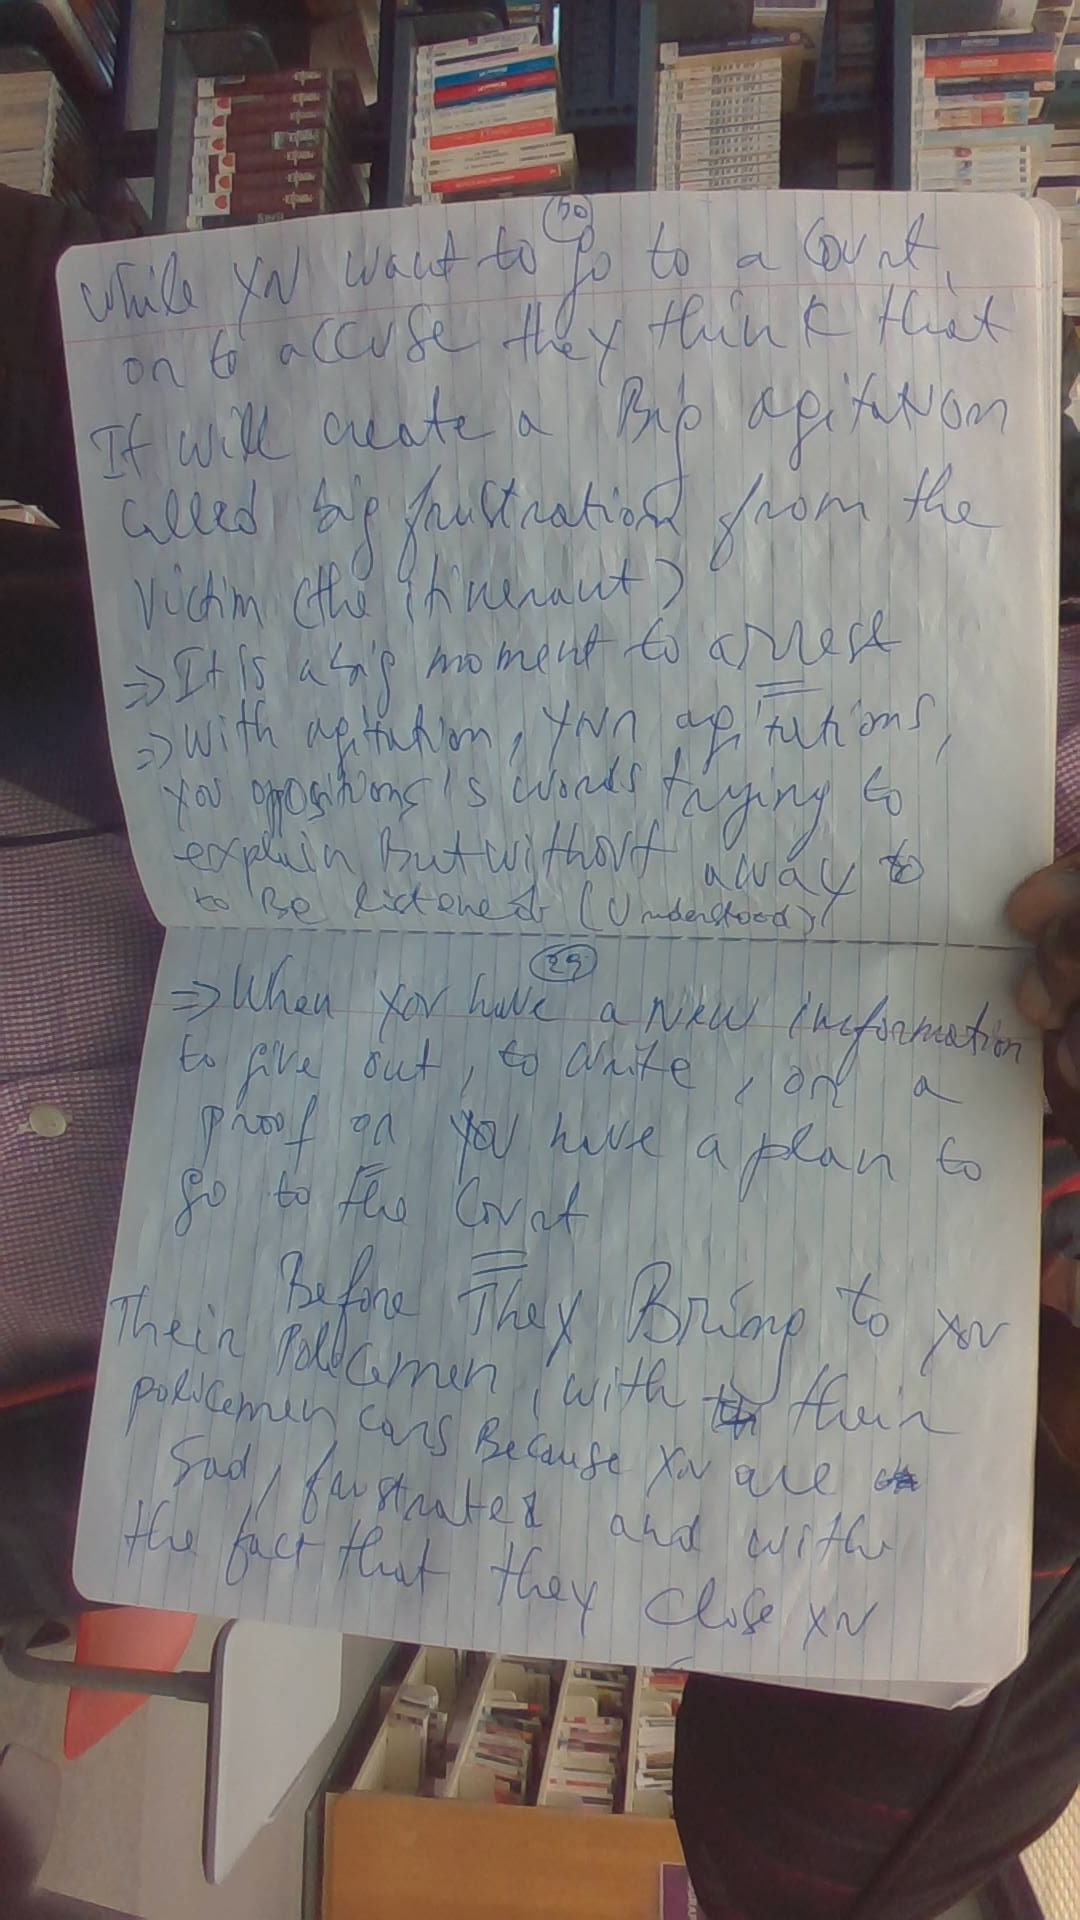 30
While you want to go to a Court,
or to accuse they think that
It will create a Big agitation
called big frustration from the
Victim (the itinerant)
=> It is a big moment to arrest
=> With agitation, your agitations,
you oppositions's words trying to
explain But without away to
to Be listened (Understood)
29
=> When you have a New information
to give out, to write, or a
proof or you have a plan to
go to the Court
Before They Bring to you
Their Policemen, with their
policemen cars Because you are
Sad, frustrated and with
the fact that they close you